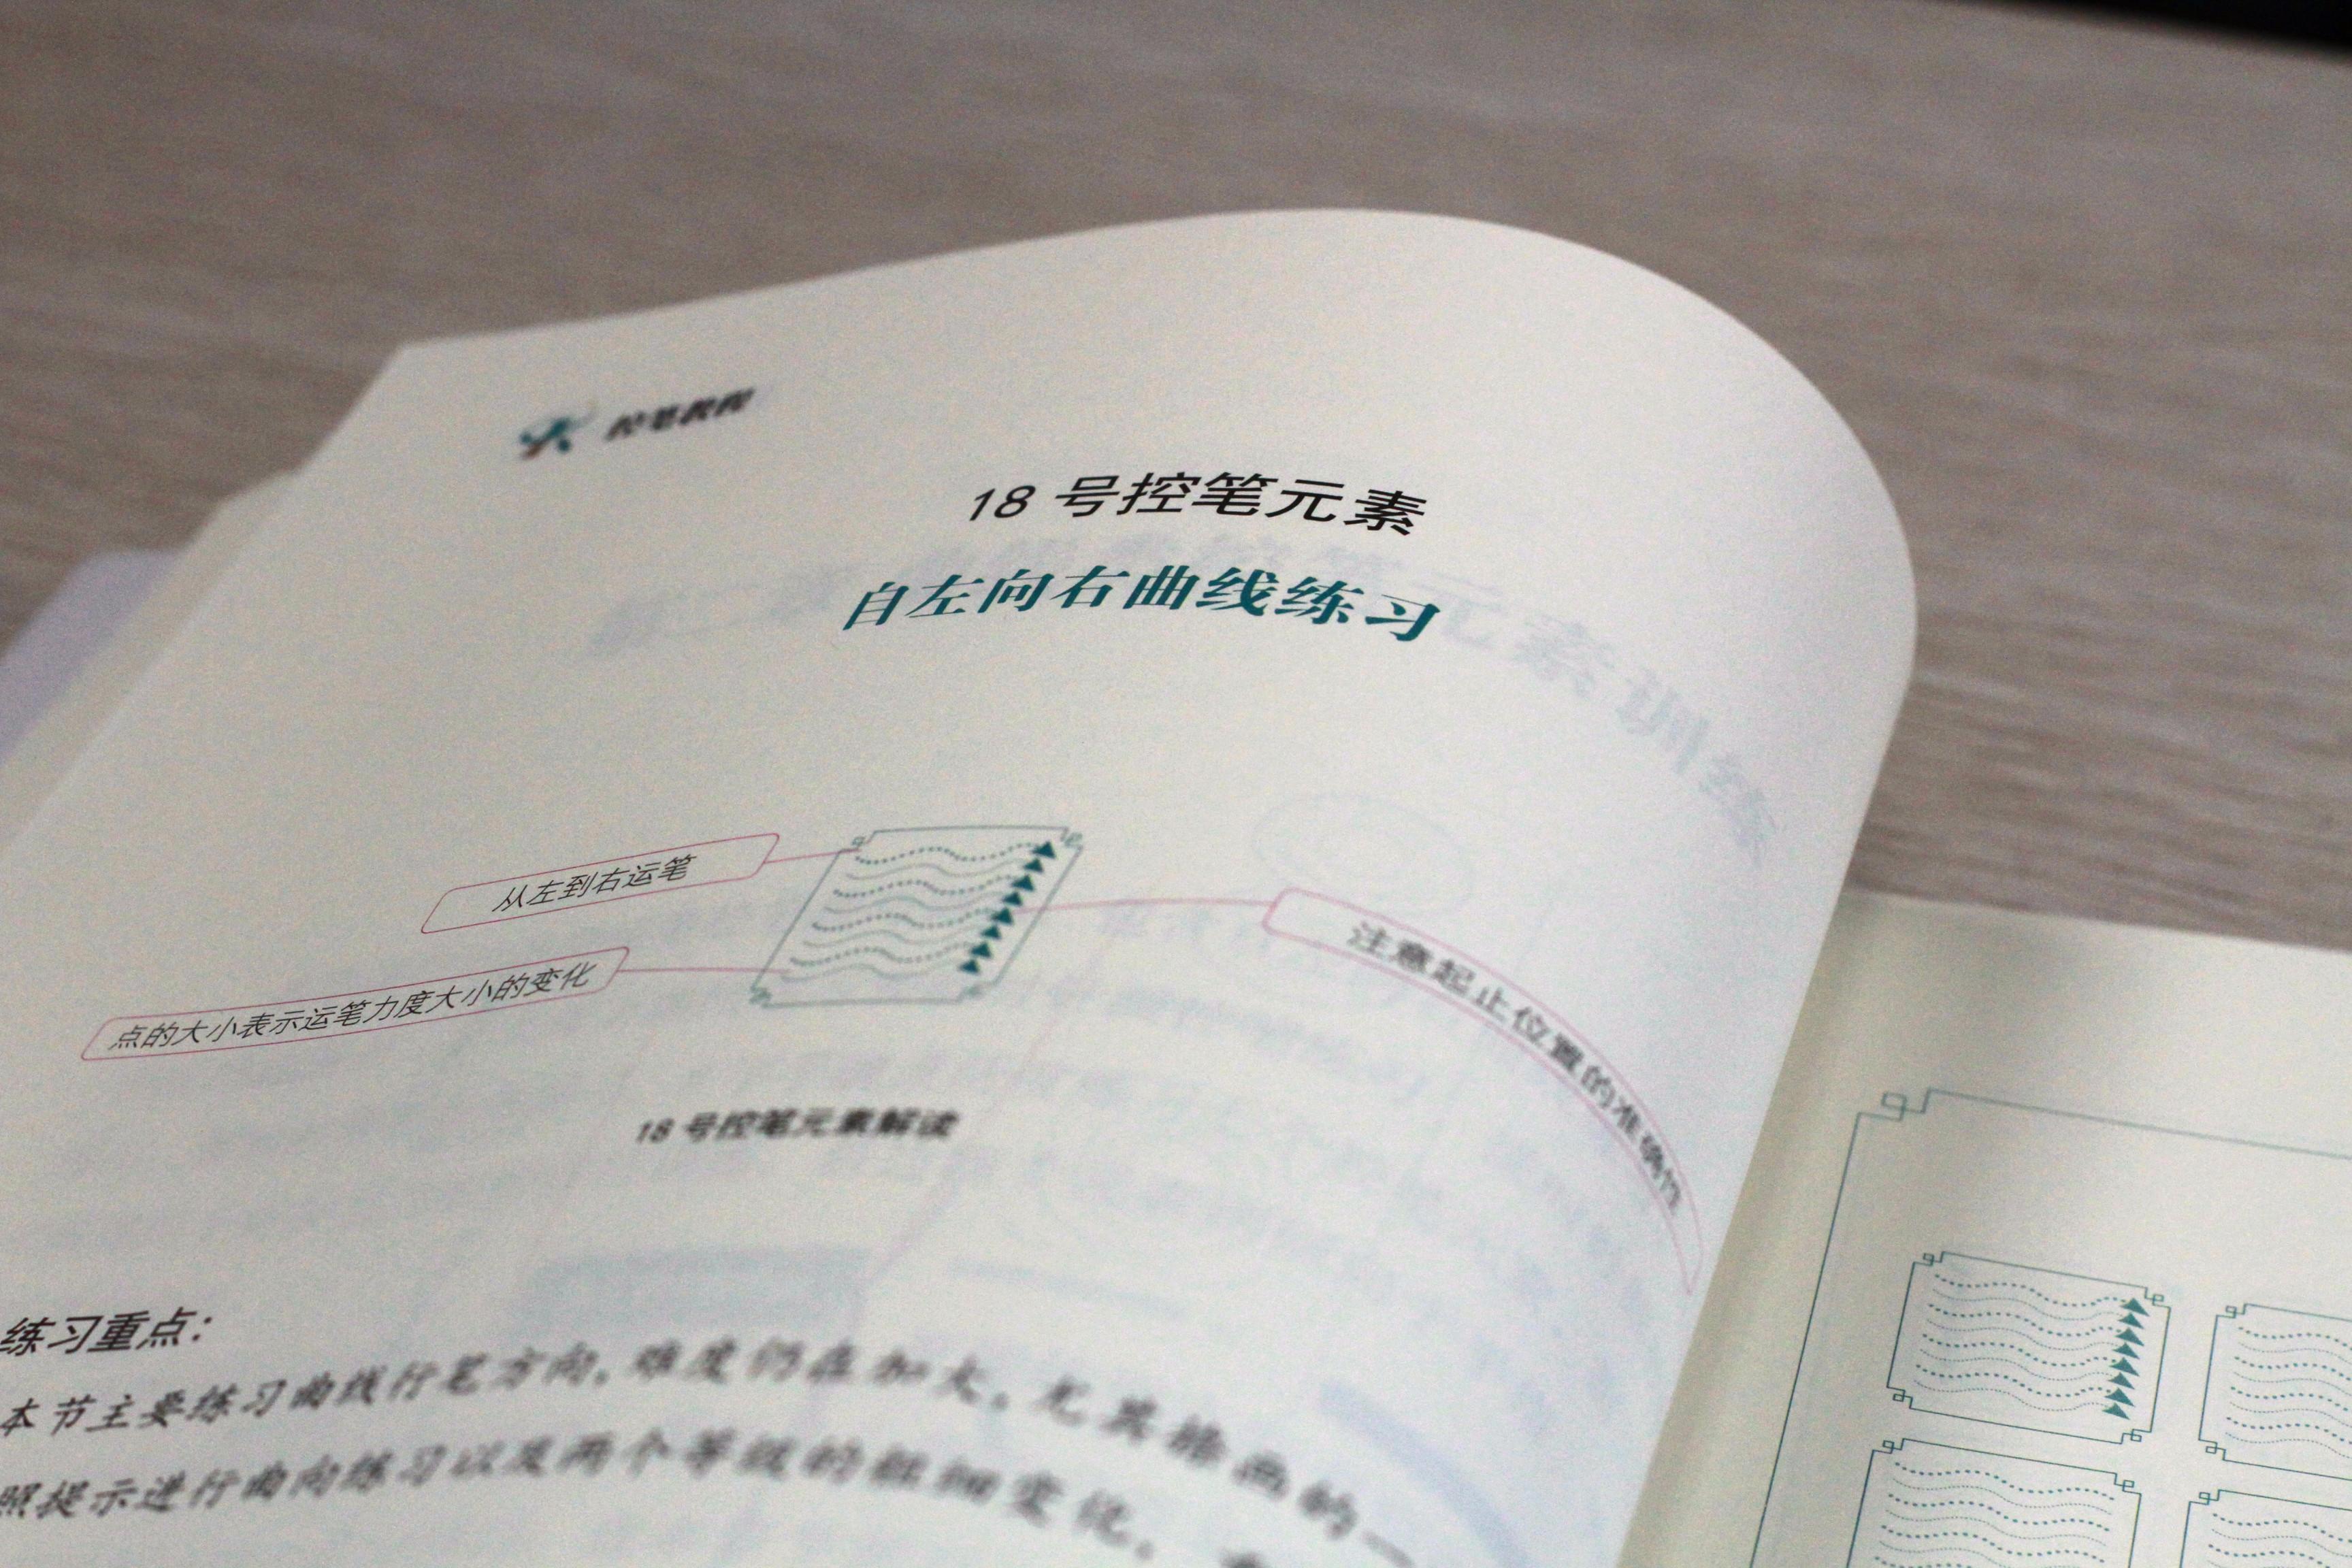 控笔教程
18 号控笔元素
自左向右曲线练习
从左到右运笔
点的大小表示运笔力度大小的变化
注意起止位置的准确性
18 号控笔元素解读
练习重点：
本节主要练习曲线行笔方向，难度仍在加大。尤其推画的一
照提示进行曲向练习以及两个等级的粗细变化。